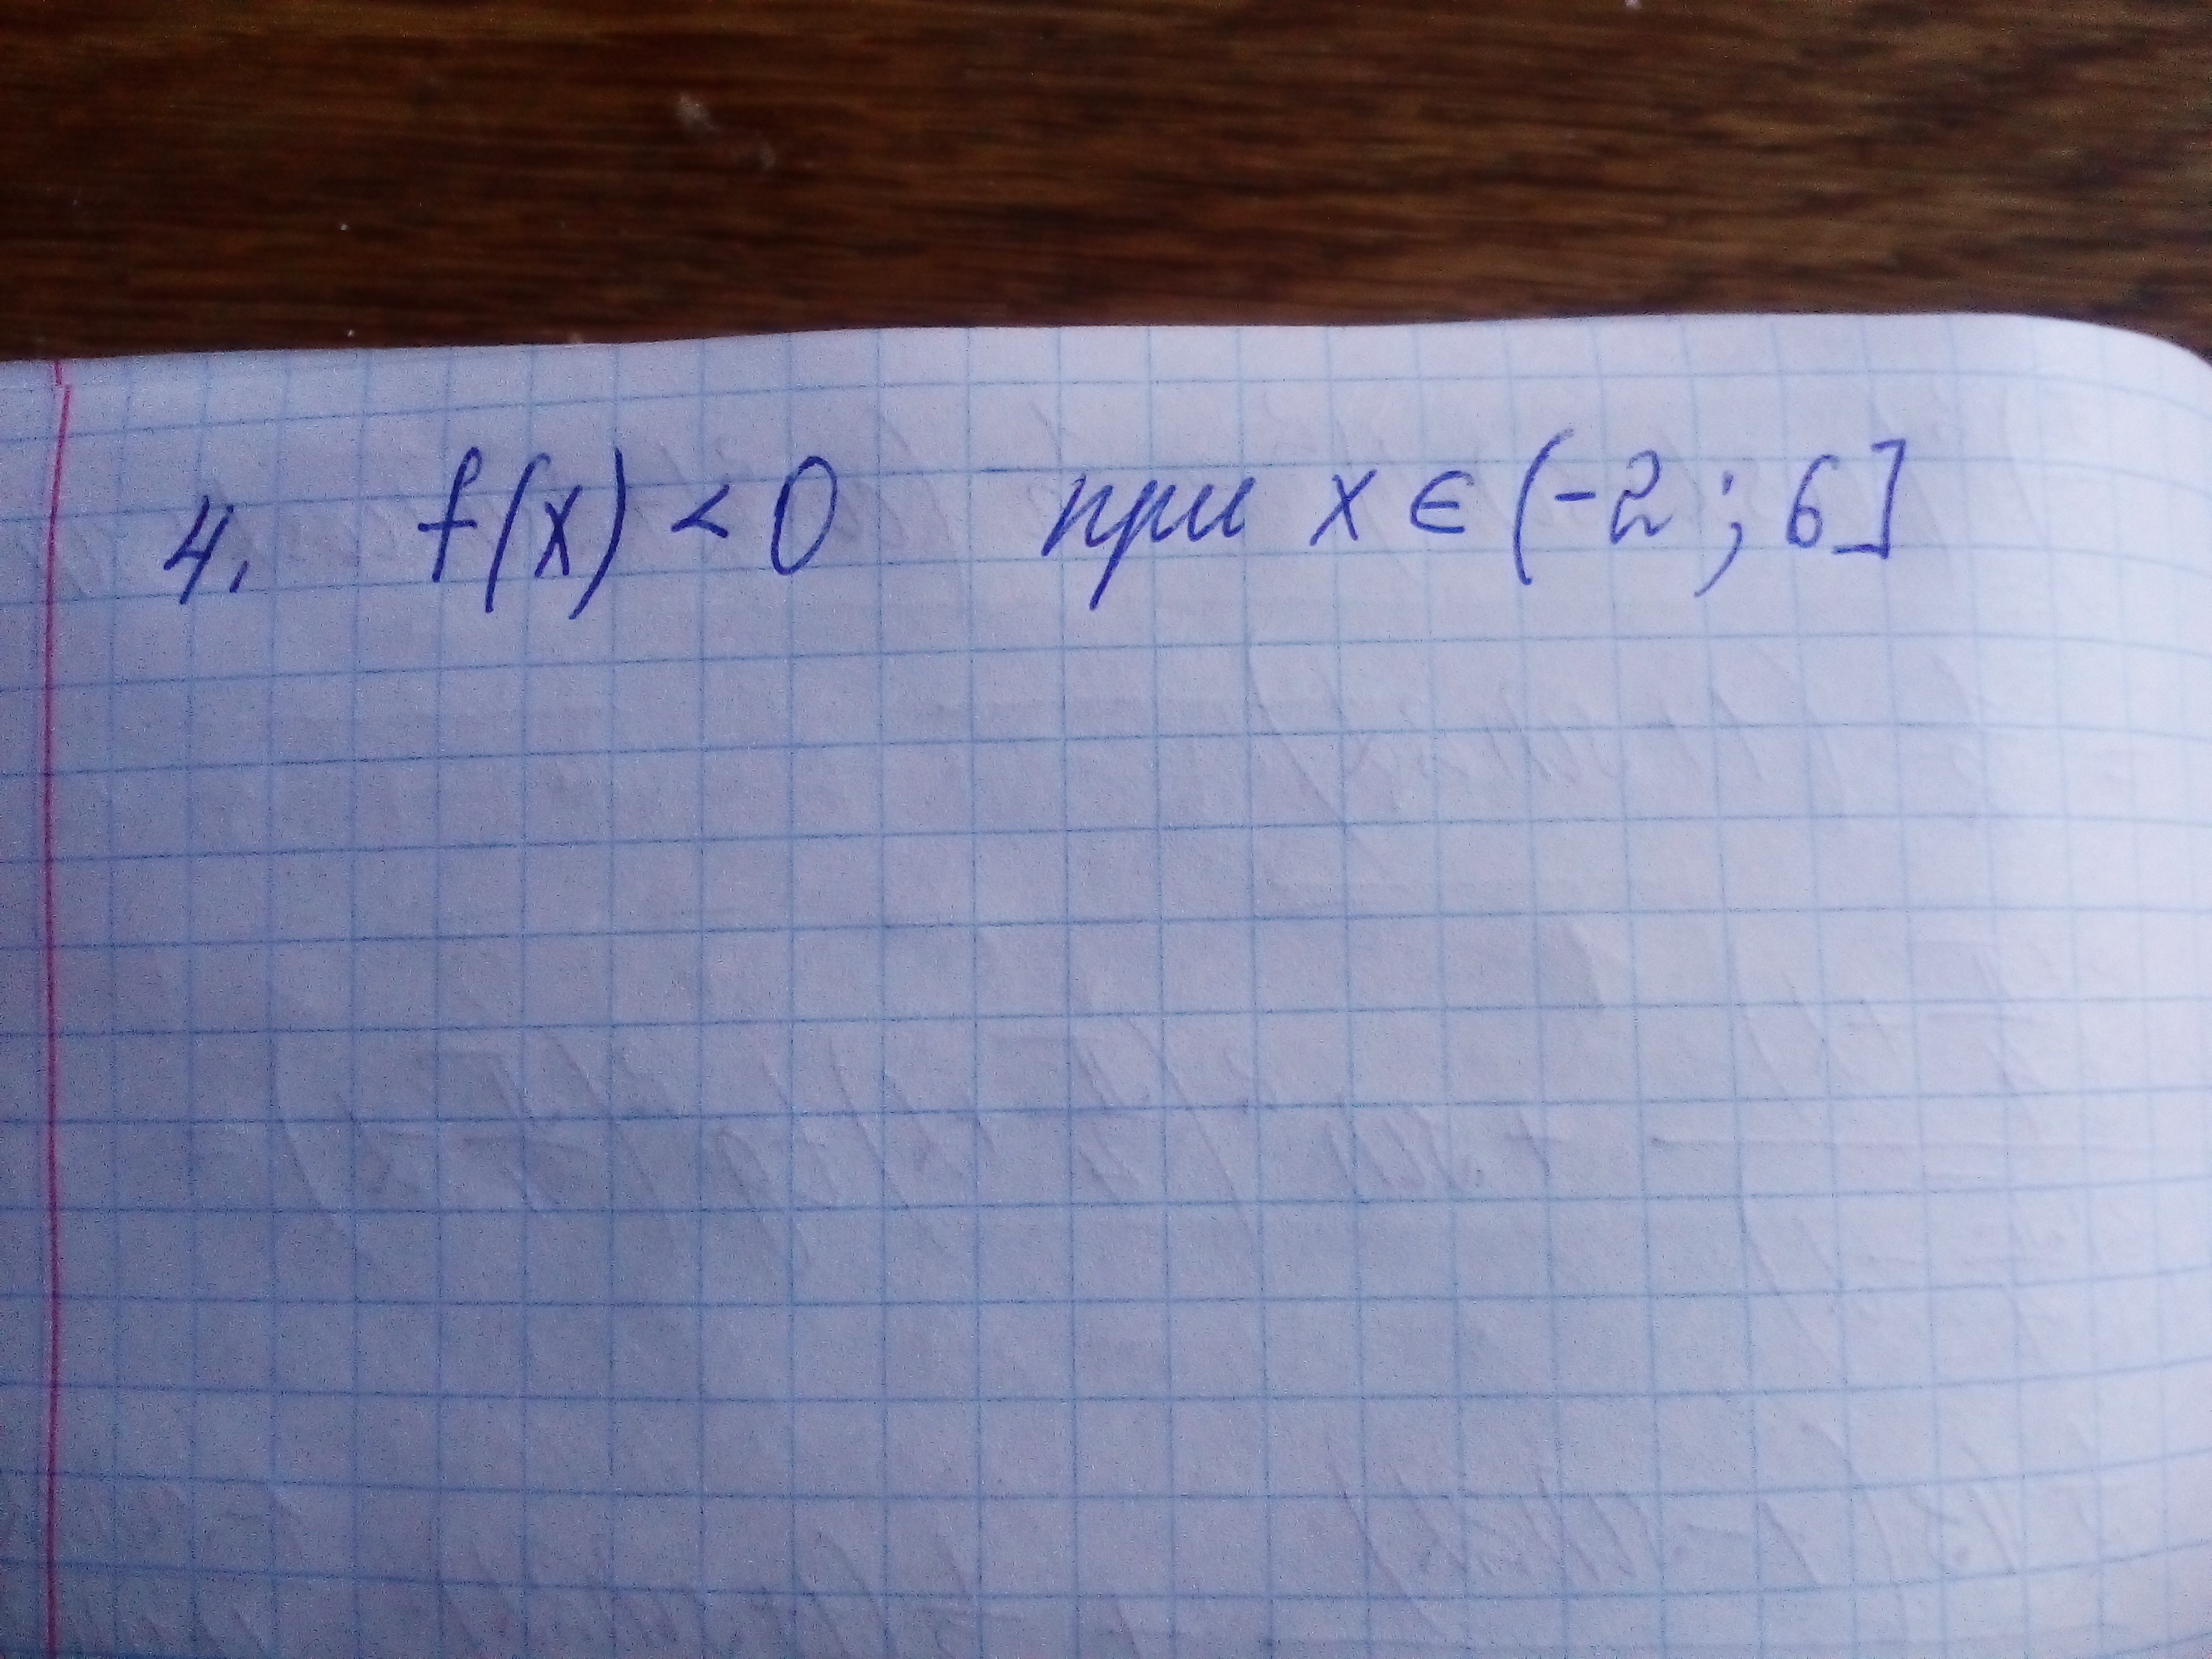 4. f(x) < 0 при x ∈ (-2 ; 6]